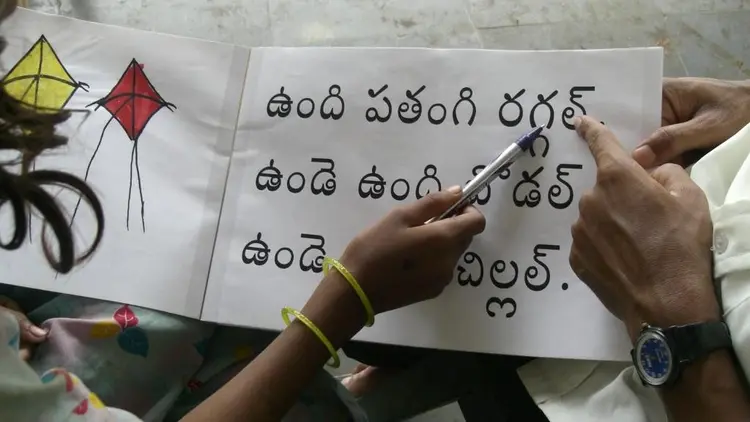 ఉంది పతంగి రగ్గల్.
ఉండె ఉంది
ఉండె చిల్లల్.